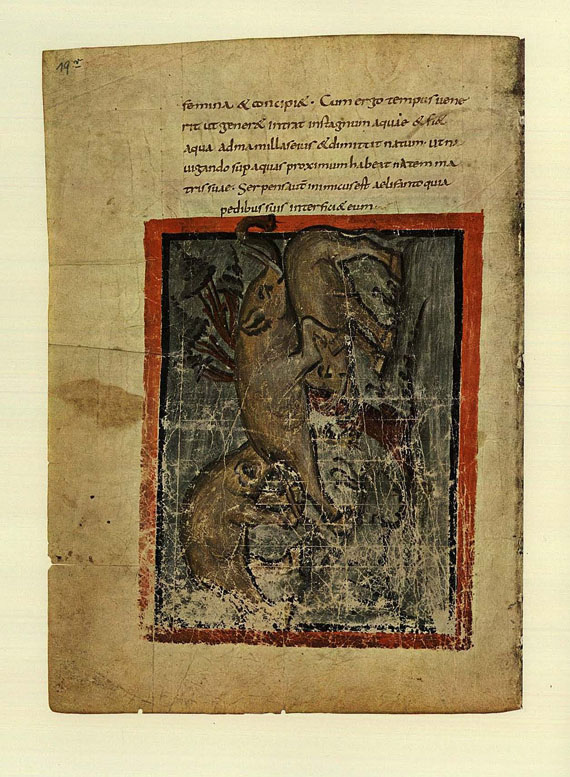 19v
femina & concipi&. Cum ergo tempus vene
rit ut gener& intrat in stagnum aquae & fi&
aqua ad mamillas eius & dimittit natum. ut na
vigando sup aquas proximum habeat natem ma
tris suae. Serpens aut inimicus est aelifanto quia
pedibus suis interfici& eum.